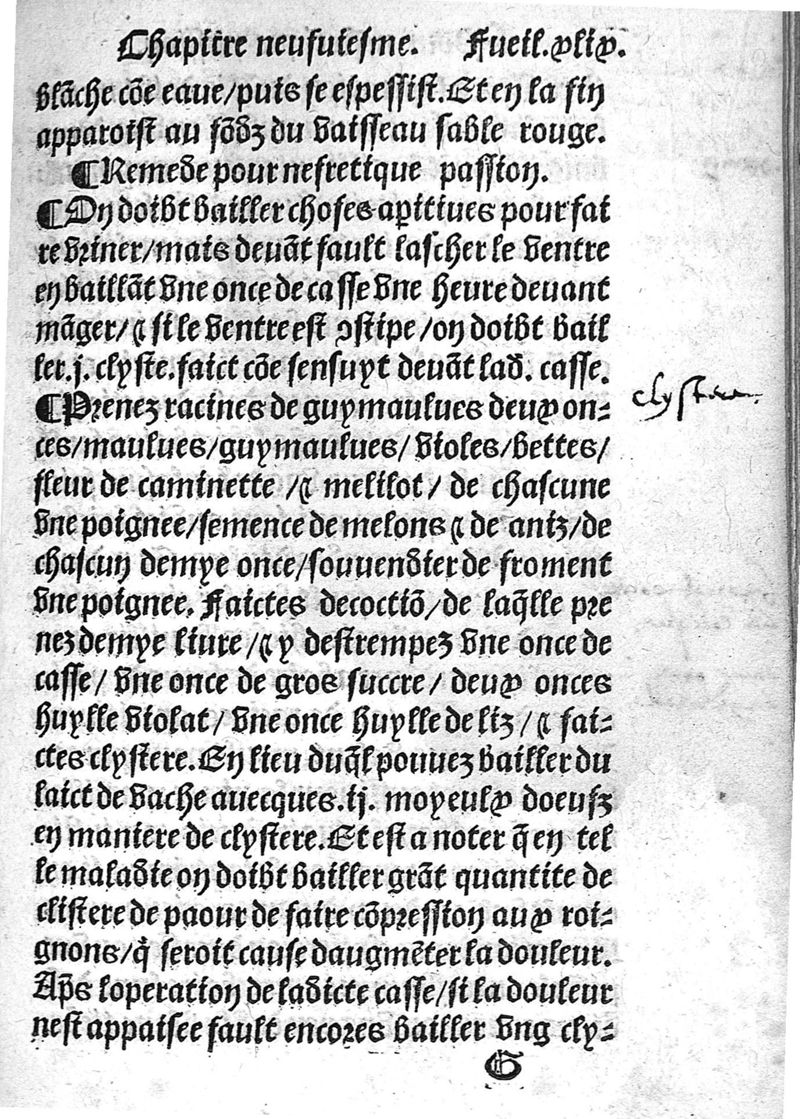 Chapitre neufuiesme. Fueil.xlix.
blāche cōe eaue/puis se espessist. Et en la fin
apparoist au fōdz du vaisseau sable rouge.
¶Remede pour nefretique passion.
¶On doibt bailler choses aꝑitiues pour fai
re vriner/mais deuāt fault lascher le ventre
en baillāt vne once de casse vne heure deuant
māger/⁊ si le ventre est ꝯstipe/on doibt bail
ler.j. clyste.faict cōe sensuyt deuāt lad. casse.
clystere.
¶Prenez racines de guymaulues deux on⸗
ces/maulues/guymaulues/violes/bettes/
fleur de caminette /⁊ melilot/ de chascune
vne poignee/semence de melons ⁊ de aniz/de
chascun demye once/souuendier de froment
vne poignee. Faictes decoctiō/de laq̄lle pre
nez demye liure /⁊ y destrempez vne once de
casse/ vne once de gros succre/ deux onces
huylle violat/ vne once huylle de liz/⁊ fai⸗
ctes clystere. En lieu duq̄l pouuez bailler du
laict de vache auecques.ij. moyeulx doeufz
en maniere de clystere. Et est a noter q̄ en tel
le maladie on doibt bailler grāt quantite de
clistere de paour de faire cōpression aux roi⸗
gnons/q̇ seroit cause daugmēter la douleur.
Ap̄s loperation de ladicte casse/si la douleur
nest appaisee fault encores bailler vng cly⸗
G